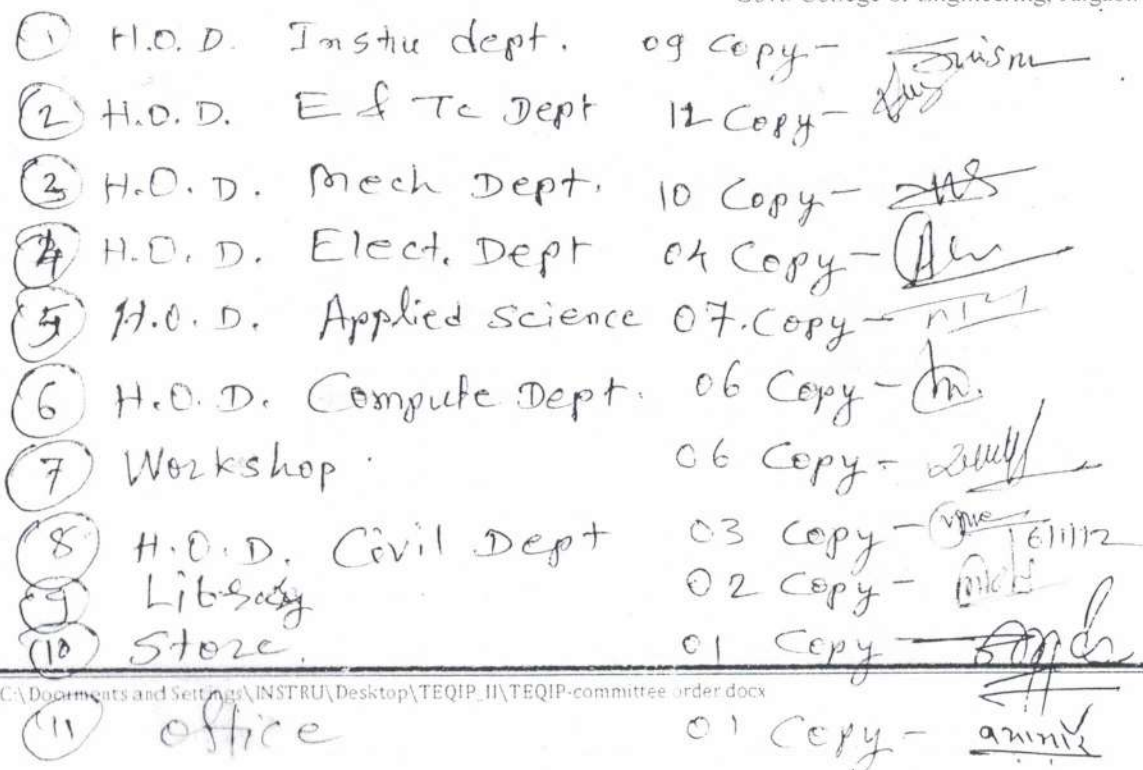 College of Engineering,
① H.O.D. Instru dept. 09 Copy-
② H.O.D. E & Tc Dept 12 Copy-
③ H.O.D. Mech Dept. 10 Copy-
④ H.O.D. Elect. Dept 04 Copy-
⑤ H.O.D. Applied Science 07. Copy-
⑥ H.O.D. Compute Dept. 06 Copy-
⑦ Workshop. 06 Copy-
⑧ H.O.D. Civil Dept 03 Copy- 6/11/12
⑨ Library 02 Copy-
⑩ Store. 01 Copy
C:\Documents and Settings\INSTRU\Desktop\TEQIP_II\TEQIP-committee order.docx
⑪ office 01 Copy-